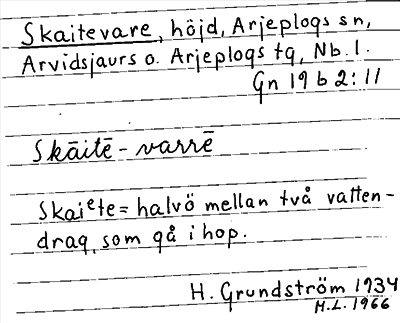 Skaitevare, höjd, Arjeplogs sn,
Arvidsjaurs o. Arjeplogs tg, Nb. l.
Gn 19 b 2:11
Skāitē - varrē
Skaiᵉte = halvö mellan två vatten-
drag, som gå ihop.
H. Grundström 1934
H.L. 1966